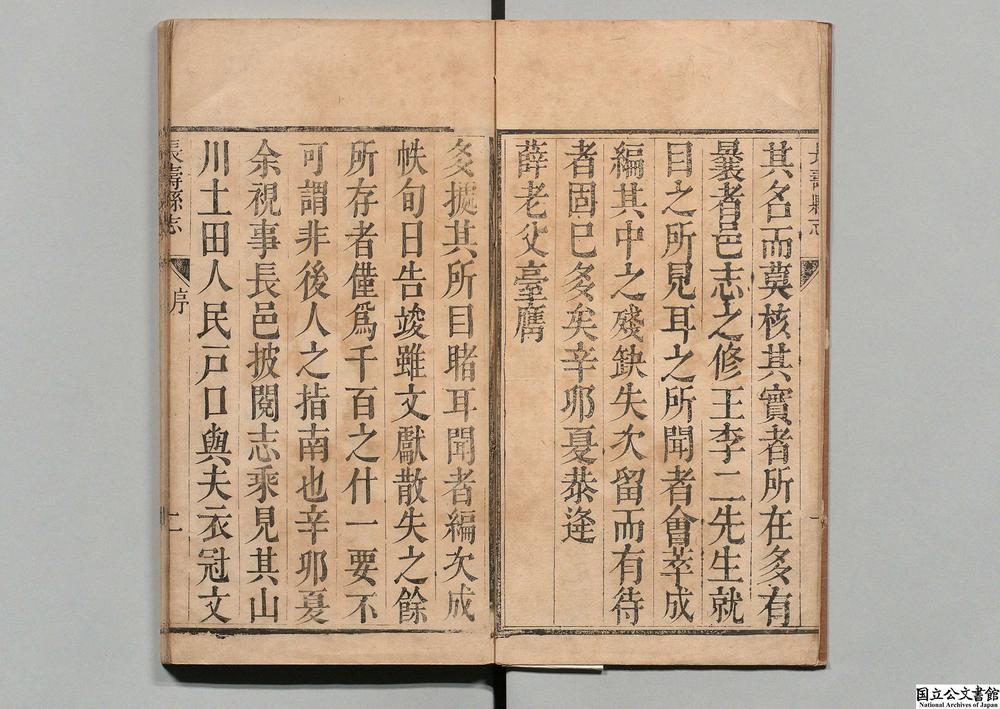 長壽縣志
其名而莫核其實者所在多有
曩者邑志之修王李二先生就
目之所見耳之所聞者會萃成
編其中之殘缺失次留而有待
者固已多矣辛卯夏恭逢
薛老父臺膺
多據其所目睹耳聞者編次成
帙旬日告竣雖文獻散失之餘
所存者僅爲千百之什一要不
可謂非後人之指南也辛卯夏
余視事長邑披閱志乘見其山
川土田人民戸口與夫衣冠文
長壽縣志
序
二
国立公文書館
National Archives of Japan